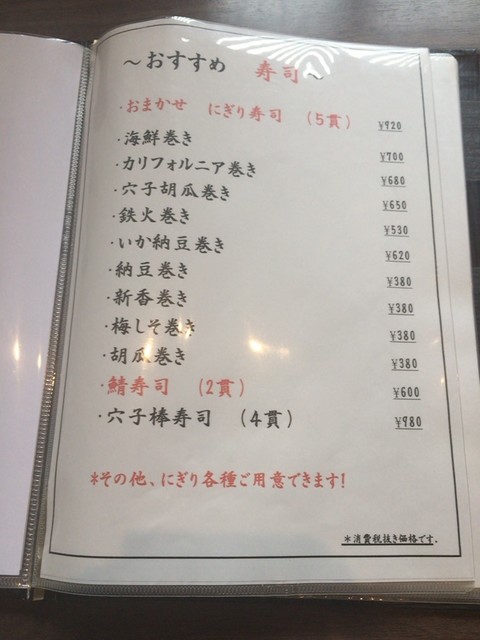 ～おすすめ 寿司～
・おまかせ にぎり寿司 (5貫) ¥920
・海鮮巻き ¥700
・カリフォルニア巻き ¥680
・穴子胡瓜巻き ¥650
・鉄火巻き ¥530
・いか納豆巻き ¥620
・納豆巻き ¥380
・新香巻き ¥380
・梅しそ巻き ¥380
・胡瓜巻き ¥380
・鯖寿司 (2貫) ¥600
・穴子棒寿司 (4貫) ¥980
*その他、にぎり各種ご用意できます!
*消費税抜き価格です。